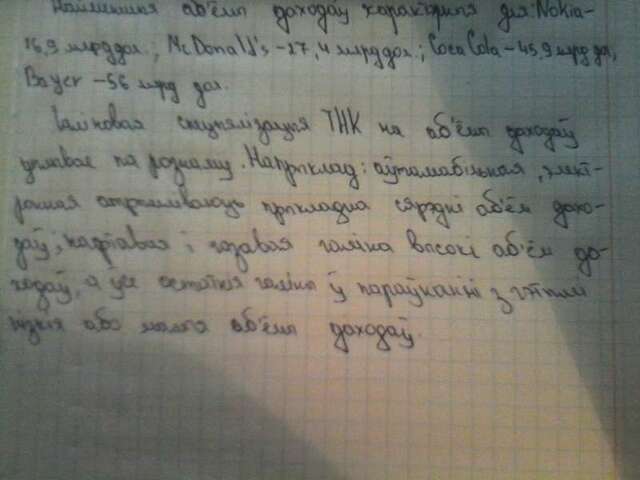 Найменшыя аб'ёмы даходаў характэрныя для: Nokia–
16,9 млрд дол.; McDonald's – 27,4 млрд дол.; Coca Cola – 45,9 млрд дол,
Bayer – 56 млрд дол.
Галіновая спецыялізацыя ТНК на аб'ёмы даходаў
уплывае па рознаму. Напрыклад: аўтамабільная, элект-
ронная атрымліваюць прыкладна сярэдні аб'ём дахо-
даў, нафтавая і газавая галіна высокі аб'ём да-
ходаў, а ўсе астатнія галіны ў параўнанні з гэтымі
нізкія або малыя аб'ёмы даходаў.